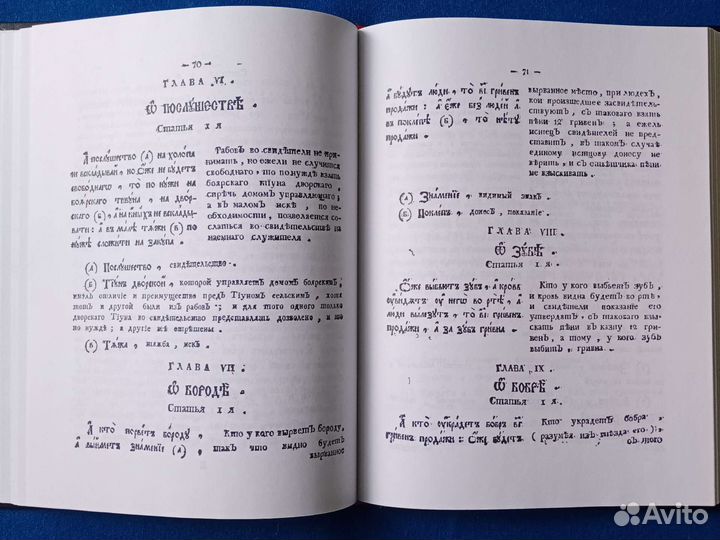 — 70 —
ГЛАВА VI.
Ѿ ПОСЛꙊШЕСТВѢ
Статья I я
А послꙋшество (А) на холопа
не вскладываютъ но Ѻже не бꙋдетъ
свободнаго, то по нꙋжи на
боярского тивꙋна, дворского
(Б), а на иныхъ не вскладывати:
а въ малѣ тяжи (В) по
нꙋжѣ сложити на закꙋпа
Рабовъ во свидѣтели не принимать,
но ежели не случится
свободнаго то по нуждѣ взять
боярскаго тїуна дворскаго,
сирѣчь домомъ управляющаго;
а въ маломъ искѣ, по необходимости,
позволяется сослаться
во свидѣтельствѣ на
наемнаго служителя.
(А) Послꙋшество, свидѣтельство.
(Б) Тїꙋнъ дворскои, которой управляетъ домомъ боярскимъ,
имѣлъ отличїе и преимущество предъ Тїуномъ сельскимъ, хотя
тотъ и другой были изъ рабовъ; и для того одного только
дворскаго Тїуна во свидѣтельство представлять дозволено, и то
по нуждѣ; а другїе всѣ отрѣшены.
(В) Тяжа, тяжба, искъ.
ГЛАВА VII.
Ѿ БОРОДѢ
Статья I я.
А кто порветъ бородꙋ,
а выиметъ знаменїе (А),
Кто у кого вырветъ бороду,
такъ что видно будетъ
вырванное
— 71 —
а бꙋдꙋтъ люди, то вı гривенъ
продажи: а Ѻже безъ людеи а
въ поклепѣ (Б), то нѣтꙋ
продажи.
вырванное мѣсто, при людехъ,
кои произшедшее засвидѣтельствуютъ,
съ таковаго взять
пѣни 12 гривенъ; а ежели
истецъ свидѣтелей не представитъ,
въ такомъ случаѣ
единому истцову доносу не
вѣрить; и съ отвѣтчика пѣни
не взыскивать.
(А) Знаменїе, видимый знакъ.
(Б) Поклепъ, доносъ, показанїе.
ГЛАВА VIII
Ѿ ЗꙊБѢ
Статья I я.
Ѻже выбьютъ зꙋбъ, а кровь
ꙋвидятъ ꙋ него во ртѣ, и
люди вылѣзꙋтъ, то вı гривенъ
продажи, а за зꙋбъ гривна.
Кто у кого выбьетъ зубъ,
и кровь видна будетъ во ртѣ,
и свидѣтели показанїе его
утвердятъ, съ таковаго взыскать
пѣни въ казну 12 гривенъ,
а тому, у кого зубъ
выбитъ, гривна.
ГЛАВА IX
Ѿ БОБРѢ
Статья I я.
А кто ꙋкрадетъ бобръ вı
гривенъ продажи: Ѻже бꙋдетъ
Кто украдетъ бобра
(разумѣя изъ гнѣзда его);
съ того
Avito